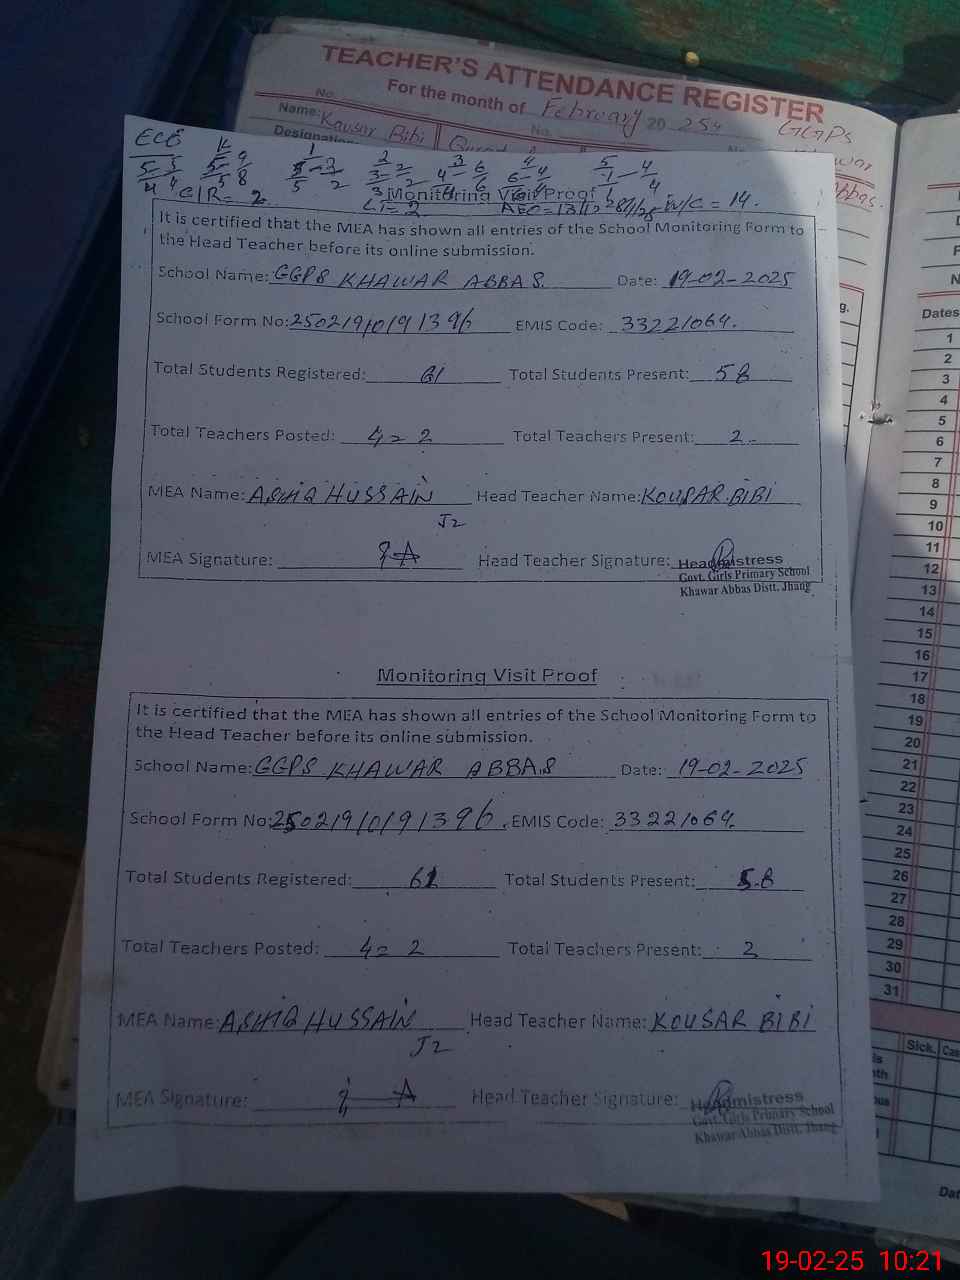 TEACHER'S ATTENDANCE REGISTER
For the month of February 20 25
No.
No.
Name: Kausar Bibi
GGPS
Designation
Abbas.
ECE
C/R = 2
L.T = 2
W/C = 14.
Monitoring Visit Proof
It is certified that the MEA has shown all entries of the School Monitoring Form to
the Head Teacher before its online submission.
School Name: GGPS KHAWAR ABBAS. Date: 19-02-2025
School Form No: 25021910191396 EMIS Code: 33221064.
Total Students Registered: 61 Total Students Present: 58
Total Teachers Posted: 4 = 2 Total Teachers Present: 2
MEA Name: ASHIQ HUSSAIN Head Teacher Name: KOUSAR BIBI
J2
MEA Signature: Head Teacher Signature: Headmistress
Govt. Girls Primary School
Khawar Abbas Distt. Jhang
Monitoring Visit Proof
It is certified that the MEA has shown all entries of the School Monitoring Form to
the Head Teacher before its online submission.
School Name: GGPS KHAWAR ABBAS Date: 19-02-2025
School Form No: 25021910191396. EMIS Code: 33221064.
Total Students Registered: 61 Total Students Present: 58
Total Teachers Posted: 4 = 2 Total Teachers Present: 2
MEA Name: ASHIQ HUSSAIN Head Teacher Name: KOUSAR BIBI
J2
MEA Signature: Head Teacher Signature: Headmistress
Govt. Girls Primary School
Khawar Abbas Distt. Jhang
Dates
1
2
3
4
5
6
7
8
9
10
11
12
13
14
15
16
17
18
19
20
21
22
23
24
25
26
27
28
29
30
31
Sick.
19-02-25 10:21